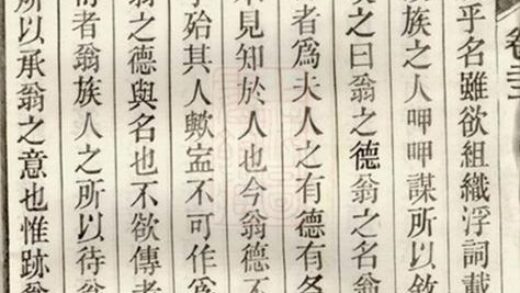 卷三
乎名雖欲組織浮詞載
族之人呷呷謀所以敘
之曰翁之德翁之名翁
者為夫人之有德有名
見知於人也今翁德不
殆其人歟盍不可作為
之德與名也不欲傳者
者翁族人之所以待翁
所以承翁之意也惟跡翁